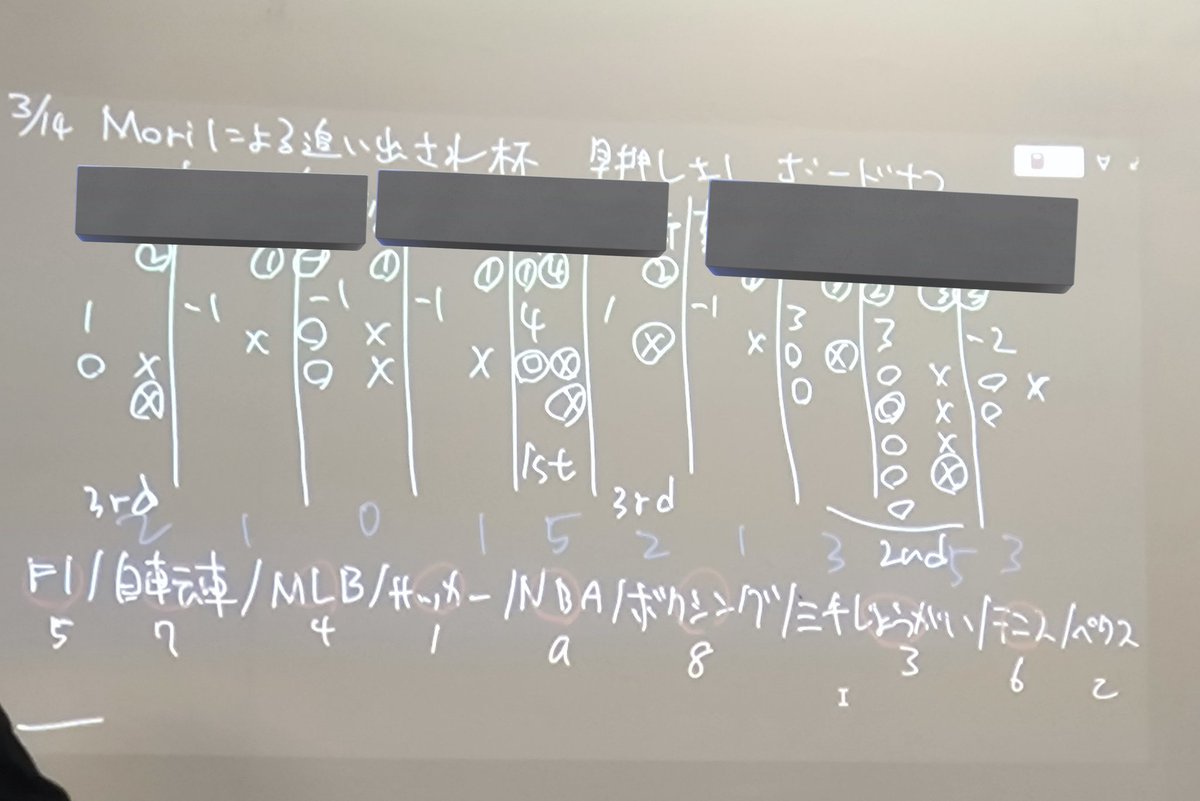 3/14 Moriによる追い出され杯 早押し ボード
② ① ⊖ ① ① ① ④ ②
1 -1 -1 -1 4 1 -1 3 3 -2
x 0 x ⓧ x 0 ⓧ
0 x 0 x x 0 ⓧ 0 0 x 0 x
ⓧ ⓧ 0 x 0
1st 0 x
3rd 3rd 0 ⓧ
0
2 1 0 1 5 2 1 3 2nd 5 3
F1/自転車/MLB/サッカー/NBA/ボクシング/三千しょうがい/テニス/ペクス
5 7 4 1 a 8 3 6 2